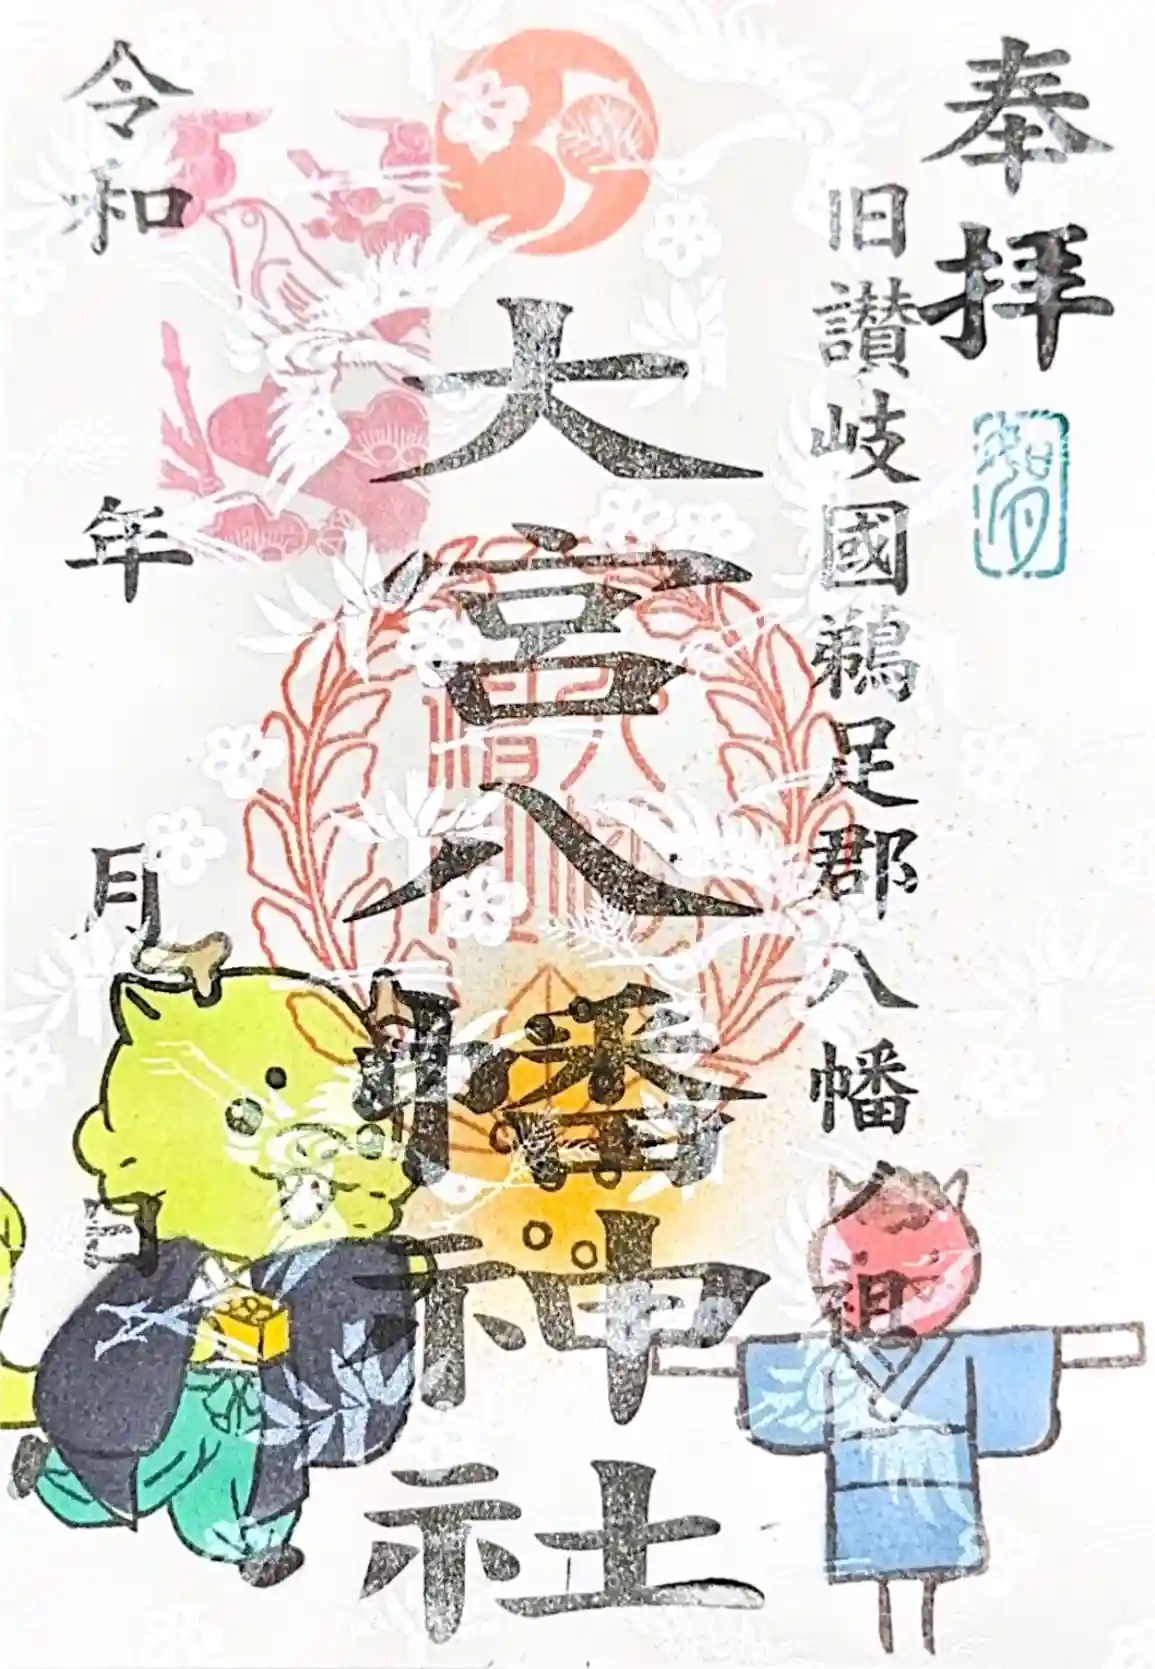 奉拝
旧讃岐國鵜足郡八幡之祖
大宮八幡神社
令和 年 月 日